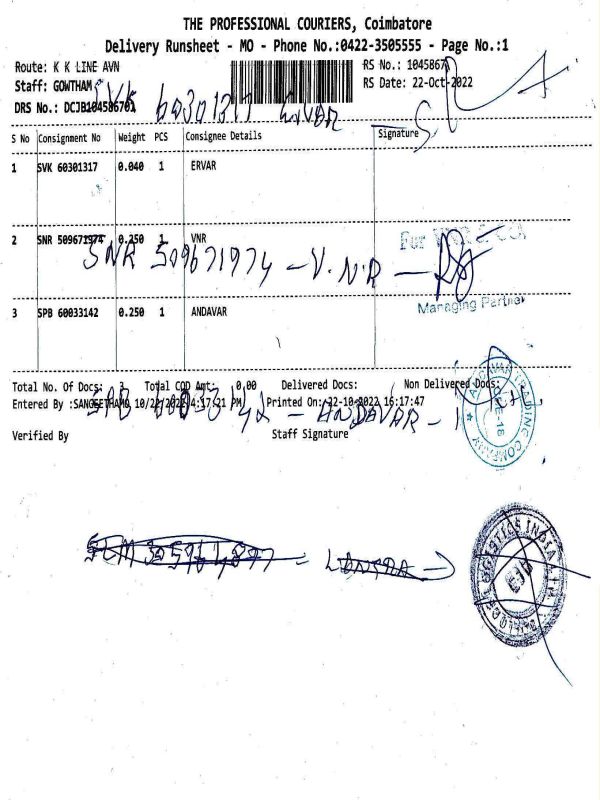 THE PROFESSIONAL COURIERS, Coimbatore
Delivery Runsheet - MO - Phone No.:0422-3505555 - Page No.:1
Route: K K LINE AVN
RS No.: 1045867
Staff: GOWTHAM
RS Date: 22-Oct-2022
DRS No.: DCJB104586701
SVK 60301317 ERVAR
S No Consignment No Weight PCS Consignee Details Signature
1 SVK 60301317 0.040 1 ERVAR
2 SNR 509671974 0.250 1 VNR
For VNR
SNR 509671974 - V.N.R -
Managing Partner
3 SPB 60033142 0.250 1 ANDAVAR
Total No. Of Docs: 3 Total COD Amt: 0.00 Delivered Docs: Non Delivered Docs:
Entered By :SANGEETHAMO 10/22/2022 4:17:21 PM Printed On: 22-10-2022 16:17:47
SPB 60033142 - ANDAVAR -
Verified By Staff Signature
TRADING COMPANY
CBE-18
LOGISTICS INDIA